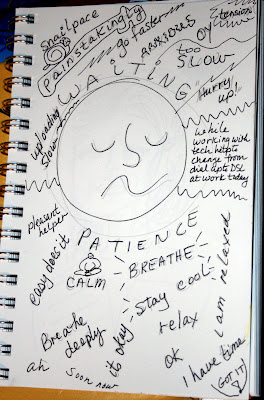 Snail pace
Painstakingly
go faster
anxious
tension
too
SLOW
WAITING
Hurry
up!
uploading
slow
while
working with
tech help to
change from
dial up to DSL
at work today
pleasant
helper
PATIENCE
easy does it
CALM
BREATHE
Stay cool
i am relaxed
Breathe
deeply
its okay
relax
ok
I have time
ah
Soon now
GOT IT